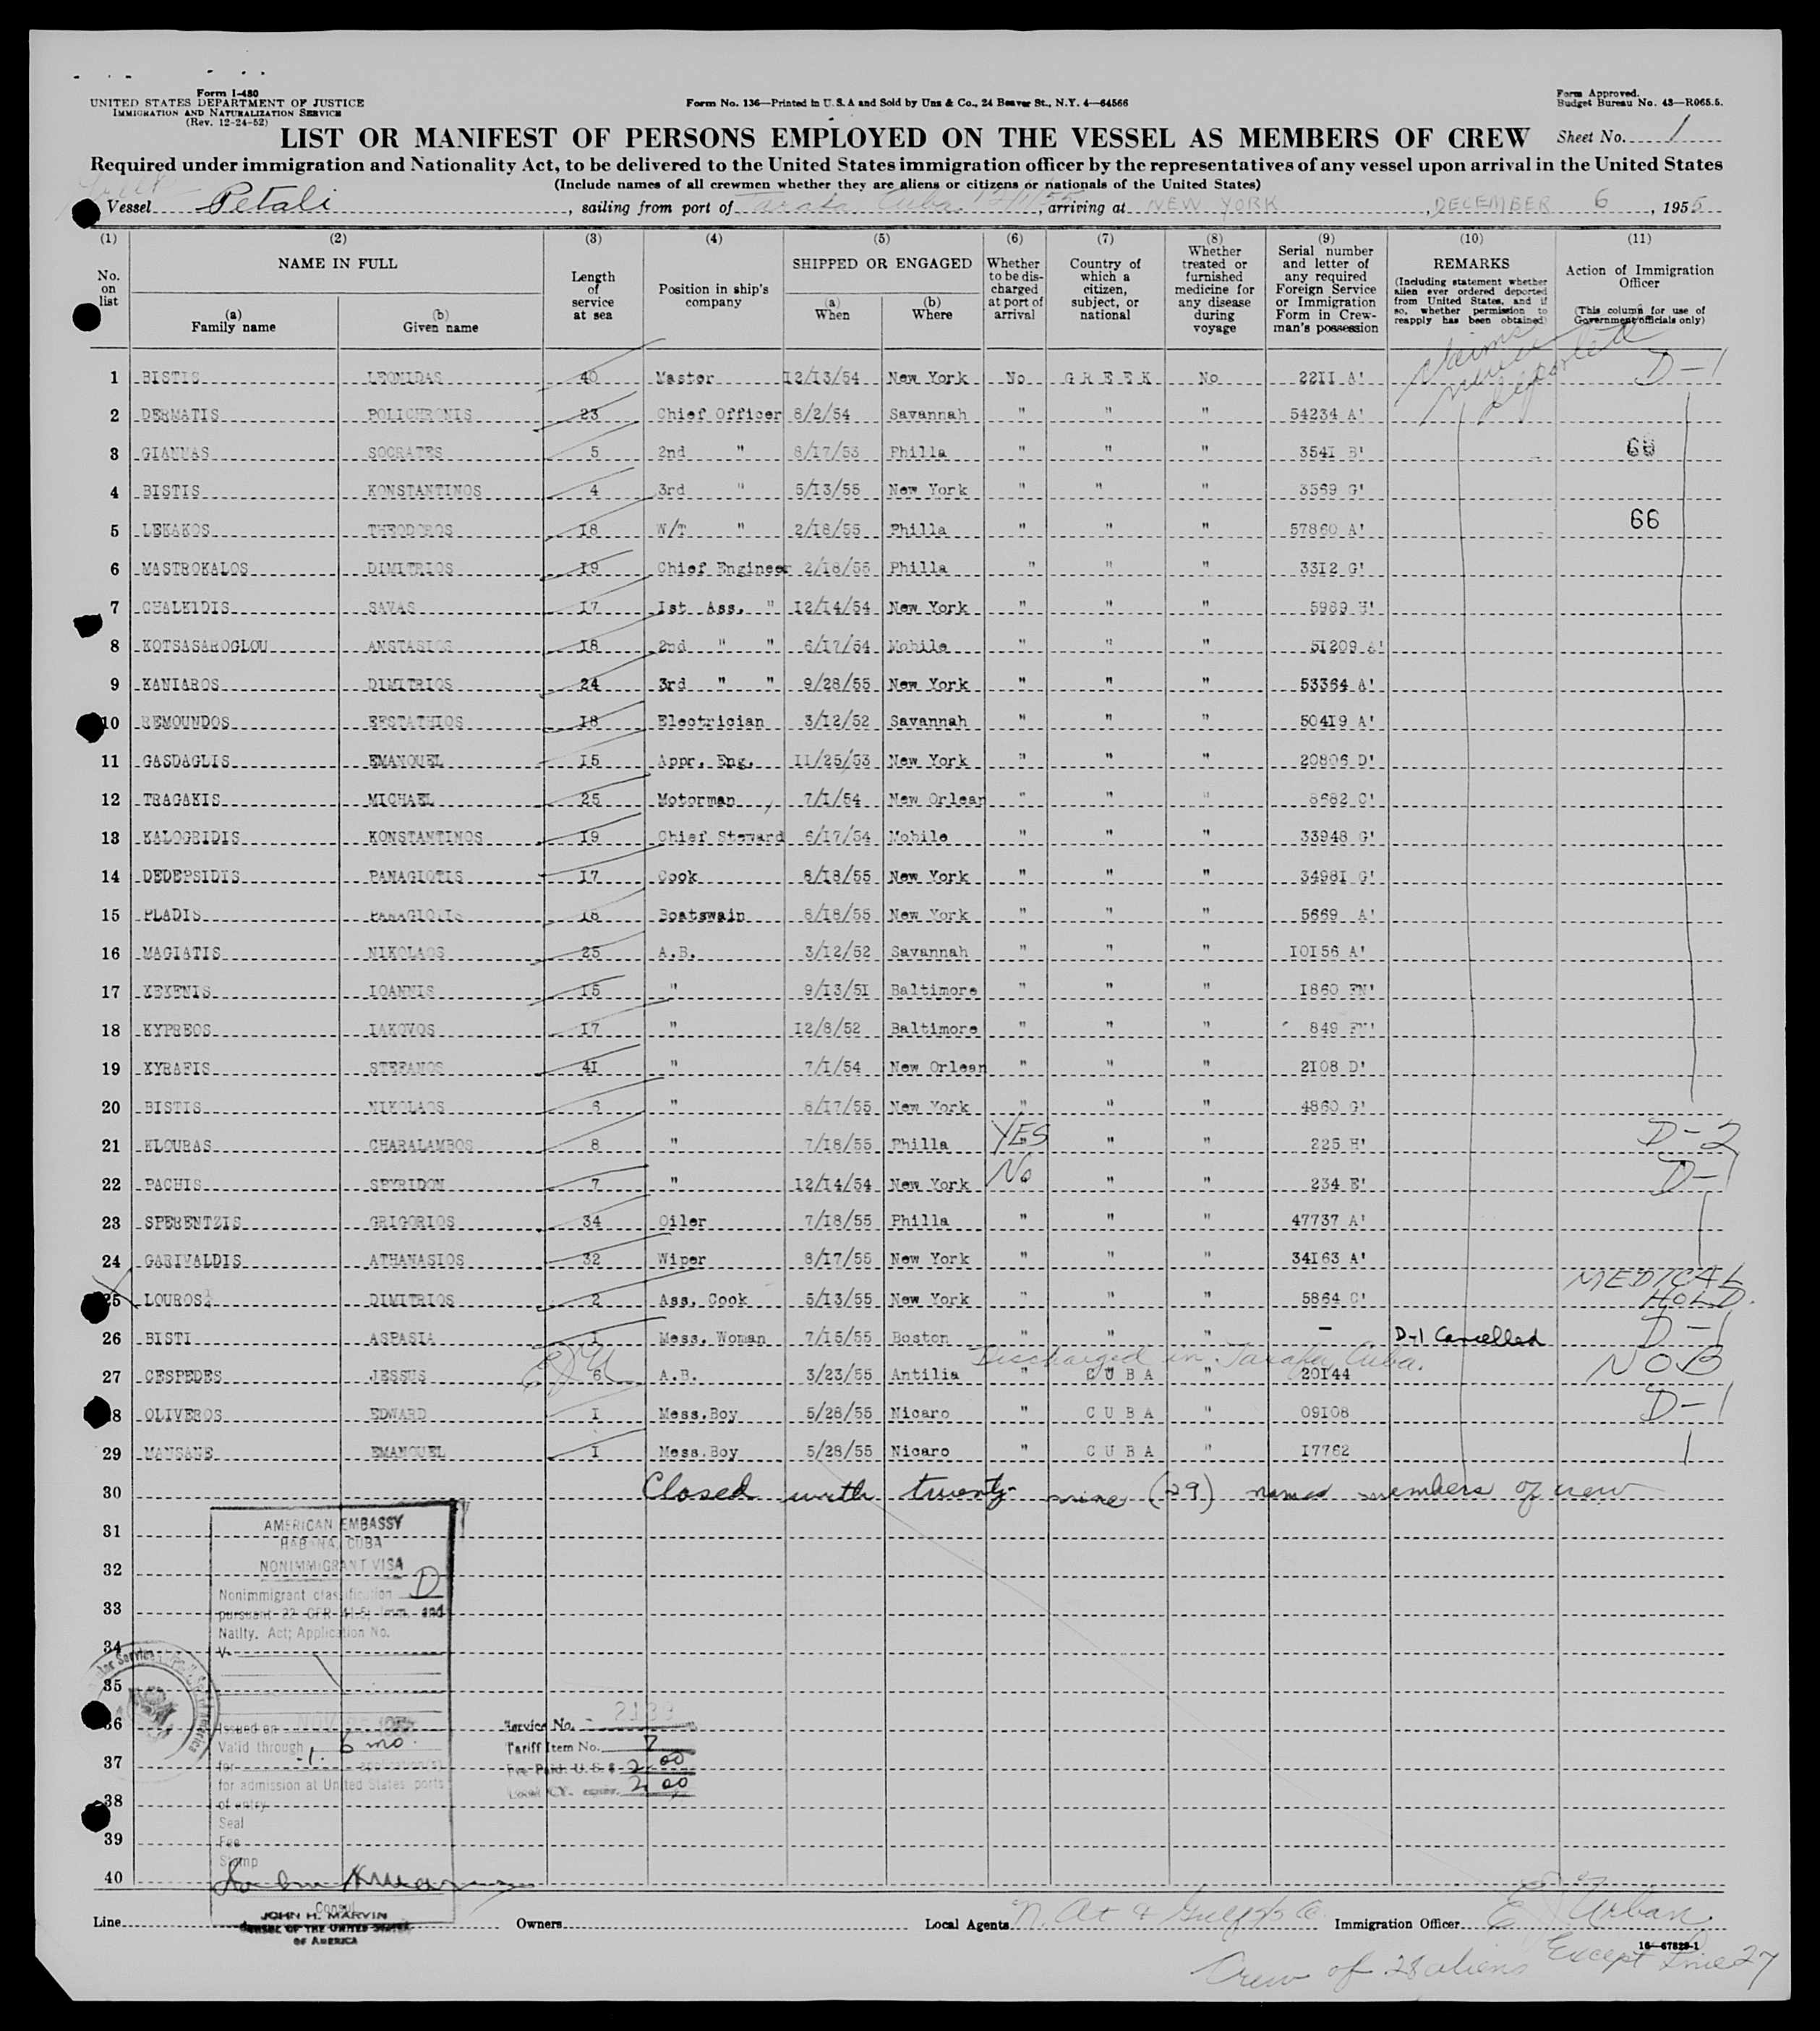 Form I-480
UNITED STATES DEPARTMENT OF JUSTICE
IMMIGRATION AND NATURALIZATION SERVICE
(Rev. 12-24-52)
Form No. 136—Printed in U.S.A and Sold by Unz & Co., 24 Beaver St., N.Y. 4—64566
Form Approved.
Budget Bureau No. 43—R065.5.
LIST OR MANIFEST OF PERSONS EMPLOYED ON THE VESSEL AS MEMBERS OF CREW
Sheet No. 1
Required under immigration and Nationality Act, to be delivered to the United States immigration officer by the representatives of any vessel upon arrival in the United States
(Include names of all crewmen whether they are aliens or citizens or nationals of the United States)
Greek
Vessel Petali, sailing from port of Tarafa, Cuba, arriving at NEW YORK, DECEMBER 6, 1955
(1) (2) (3) (4) (5) (6) (7) (8) (9) (10) (11)
No. on list
NAME IN FULL
(a) Family name
(b) Given name
Length of service at sea
Position in ship's company
SHIPPED OR ENGAGED
(a) When
(b) Where
Whether to be discharged at port of arrival
Country of which a citizen, subject, or national
Whether treated or furnished medicine for any disease during voyage
Serial number and letter of any required Foreign Service or Immigration Form in Crewman's possession
REMARKS
(Including statement whether alien ever ordered deported from United States, and if so, whether permission to reapply has been obtained)
Action of Immigration Officer
(This column for use of Government officials only)
never deported
1 BISTIS LEONIDAS 40 Master 12/13/54 New York No GREEK No 2211 A' D-1
2 DERMATIS POLICHRONIS 23 Chief Officer 8/2/54 Savannah " " " 54234 A'
3 GIANNAS SOCRATES 5 2nd " 8/17/53 Philla " " " 3541 B' 66
4 BISTIS KONSTANTINOS 4 3rd " 5/13/55 New York " " " 3569 G'
5 LEKAKOS THEODOROS 18 W/T " 2/18/55 Philla " " " 57860 A' 66
6 MASTROKALOS DIMITRIOS 19 Chief Engineer 2/18/55 Philla " " " 3312 G'
7 CHALKIDIS SAVAS 17 1st Ass. " 12/14/54 New York " " " 5989 H'
8 KOTSASAROGLOU ANSTASIOS 18 2nd " " 6/17/54 Mobile " " " 51209 A'
9 KANIAROS DIMITRIOS 24 3rd " " 9/28/55 New York " " " 53364 A'
10 REMOUNDOS EFSTATHIOS 18 Electrician 3/12/52 Savannah " " " 50419 A'
11 GASDAGLIS EMANOUEL 15 Appr. Eng. 11/25/53 New York " " " 20806 D'
12 TRAGAKIS MICHAEL 25 Motorman 7/1/54 New Orlean " " " 8682 C'
13 KALOGRIDIS KONSTANTINOS 19 Chief Steward 6/17/54 Mobile " " " 33948 G'
14 DEDEPSIDIS PANAGIOTIS 17 Cook 8/18/55 New York " " " 34981 G'
15 PLADIS PANAGIOTIS 18 Boatswain 8/18/55 New York " " " 5669 A'
16 MAGIATIS NIKOLAOS 25 A.B. 3/12/52 Savannah " " " 10156 A'
17 XEKENIS IOANNIS 15 " 9/13/51 Baltimore " " " 1860 FN'
18 KYPREOS IAKOVOS 17 " 12/8/52 Baltimore " " " 849 FN'
19 KYRAFIS STEFANOS 41 " 7/1/54 New Orlean " " " 2108 D'
20 BISTIS NIKOLAOS 6 " 8/17/55 New York " " " 4860 G'
21 KLOURAS CHARALAMBOS 8 " 7/18/55 Philla YES " " 225 H' D-2
22 PACHIS SPYRIDON 7 " 12/14/54 New York No " " 234 E' D-1
23 SPERENTZIS GRIGORIOS 34 Oiler 7/18/55 Philla " " " 47737 A'
24 GARIVALDIS ATHANASIOS 32 Wiper 8/17/55 New York " " " 34163 A'
25 LOUROS DIMITRIOS 2 Ass. Cook 5/13/55 New York " " " 5864 C' MEDICAL HOLD.
26 BISTI ASPASIA 1 Mess. Woman 7/15/55 Boston " " " — D-1 Cancelled D-1
Discharged in Tarafa, Cuba.
27 CESPEDES JESSUS 6 A.B. 3/23/55 Antilia " CUBA " 20144 NOB
28 OLIVEROS EDWARD 1 Mess.Boy 5/28/55 Nicaro " CUBA " 09108 D-1
29 MANSANE EMANOUEL 1 Mess.Boy 5/28/55 Nicaro " CUBA " 17762
30 Closed with twenty-nine (29) named members of crew
31
32
33
34
35
36
37
38
39
40
AMERICAN EMBASSY
HABANA, CUBA
NONIMMIGRANT VISA
Nonimmigrant classification D
pursuant 22 CFR 41.5; Imm. and
Natlty. Act; Application No.
V-
Issued on NOV
Valid through 6 mo.
for 1 application(s)
for admission at United States ports
of entry
Seal
Fee
Stamp
Consul
JOHN H. MARVIN
CONSUL OF THE UNITED STATES
OF AMERICA
Service No.
Tariff Item No. 7
Fee Paid: U.S. $ 2.00
Local CY. equiv. 2.00
Line
Owners
Local Agents N. Atl & Gulf S/S Co.
Immigration Officer E Urban
16—67829-1
Crew of 28 aliens Except Line 27